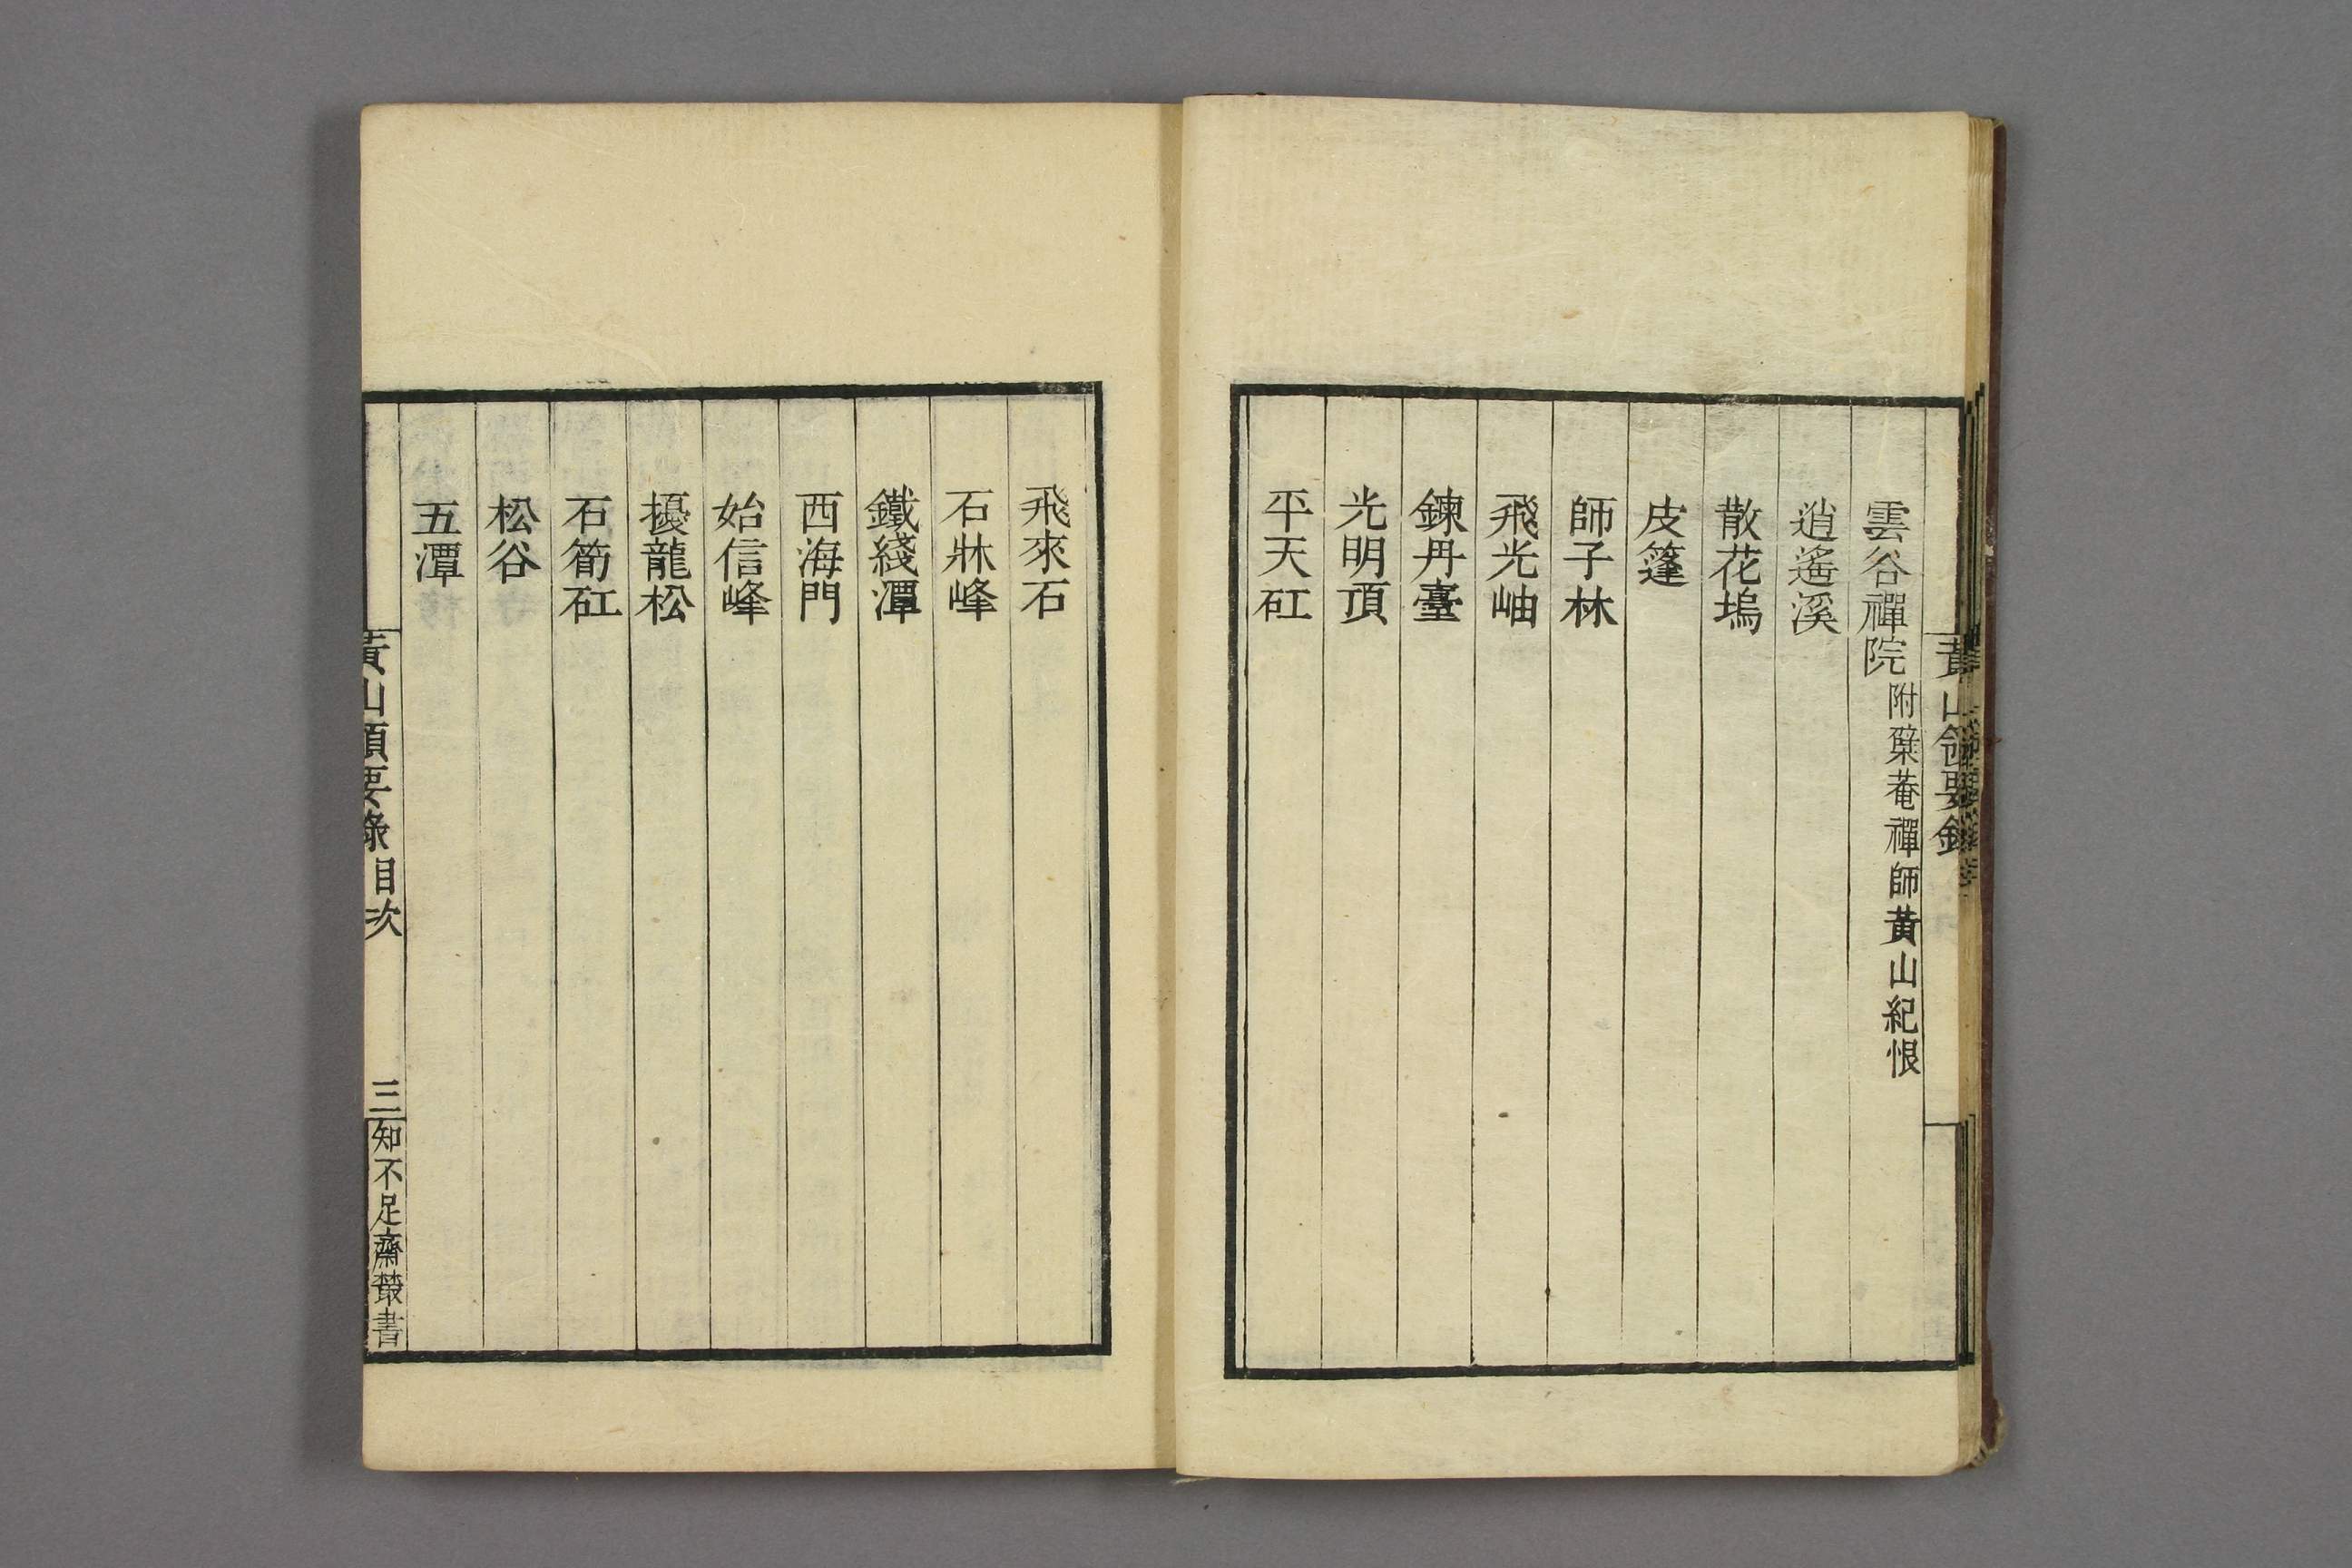 雲谷禪院附檗菴禪師黃山紀恨
逍遙溪
散花塢
皮篷
師子林
飛光岫
鍊丹臺
光明頂
平天矼
飛來石
石牀峰
鐵綫潭
西海門
始信峰
擾龍松
石筍矼
松谷
五潭
黃山領要錄目次 三 知不足齋叢書